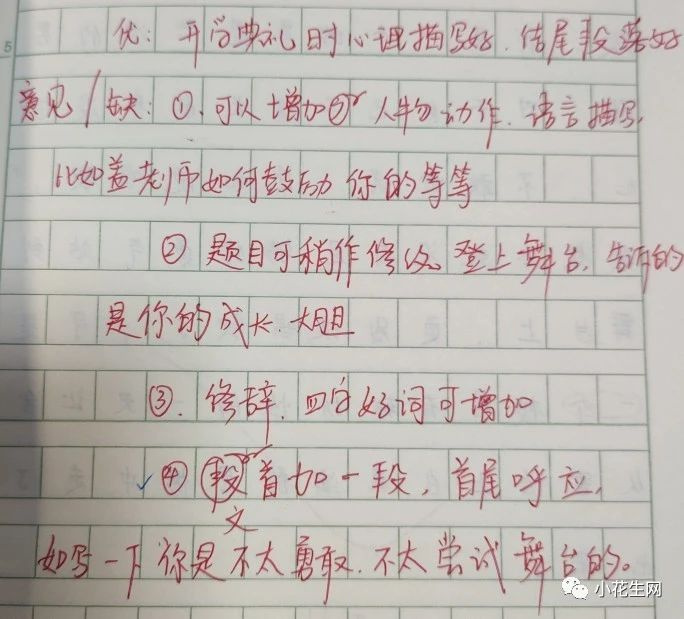 优：开学典礼时心理描写好．结尾段落好
意见/缺：①．可以增加② 人物动作．语言描写．
比如盖老师如何鼓励你的等等
② 题目可稍作修改．登上舞台．告诉的
是你的成长．大胆
③．修辞．四字好词可增加
④ 段首加一段，首尾呼应．
文
如写一下你是不太勇敢．不太尝试舞台的。
小花生网